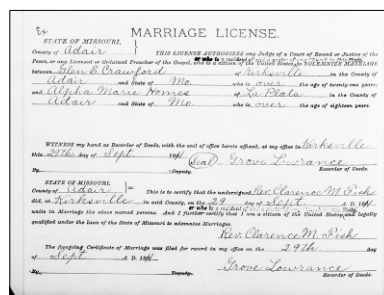 MARRIAGE LICENSE.
STATE OF MISSOURI,
County of Adair } THIS LICENSE AUTHORIZES any Judge of a Court of Record or Justice of the
Peace, or any Licensed or Ordained Preacher of the Gospel, who is a citizen of the United States, to SOLEMNIZE MARRIAGE
between Glen E. Crawford of Kirksville in the County
of Adair and State of Mo. who is over the age of twenty-one years;
and Alpha Marie Homes of La Plata in the County
of Adair and State of Mo. who is over the age of eighteen years.
WITNESS my hand as Recorder of Deeds, with the seal of office hereto affixed, at my office in Kirksville
this 29th day of Sept. 1941 (Seal) Grove Lowrance
By Deputy. Recorder of Deeds.
STATE OF MISSOURI,
County of Adair } ss. This is to certify that the undersigned Rev. Clarence M. Fish
did, at Kirksville in said County, on the 29 day of Sept. A. D. 1941
unite in Marriage the above named persons. And I further certify that I am a citizen of the United States, and legally
qualified under the laws of the State of Missouri to solemnize Marriages.
Rev. Clarence M. Fish
The foregoing Certificate of Marriage was filed for record in my office on the 29th day
of Sept A. D. 1941
Grove Lowrance
By Deputy. Recorder of Deeds.